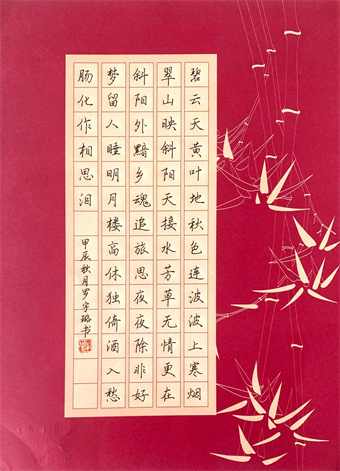 碧云天黄叶地秋色连波波上寒烟
翠山映斜阳天接水芳草无情更在
斜阳外黯乡魂追旅思夜夜除非好
梦留人睡明月楼高休独倚酒入愁
肠化作相思泪
甲辰秋月罗宇璐书